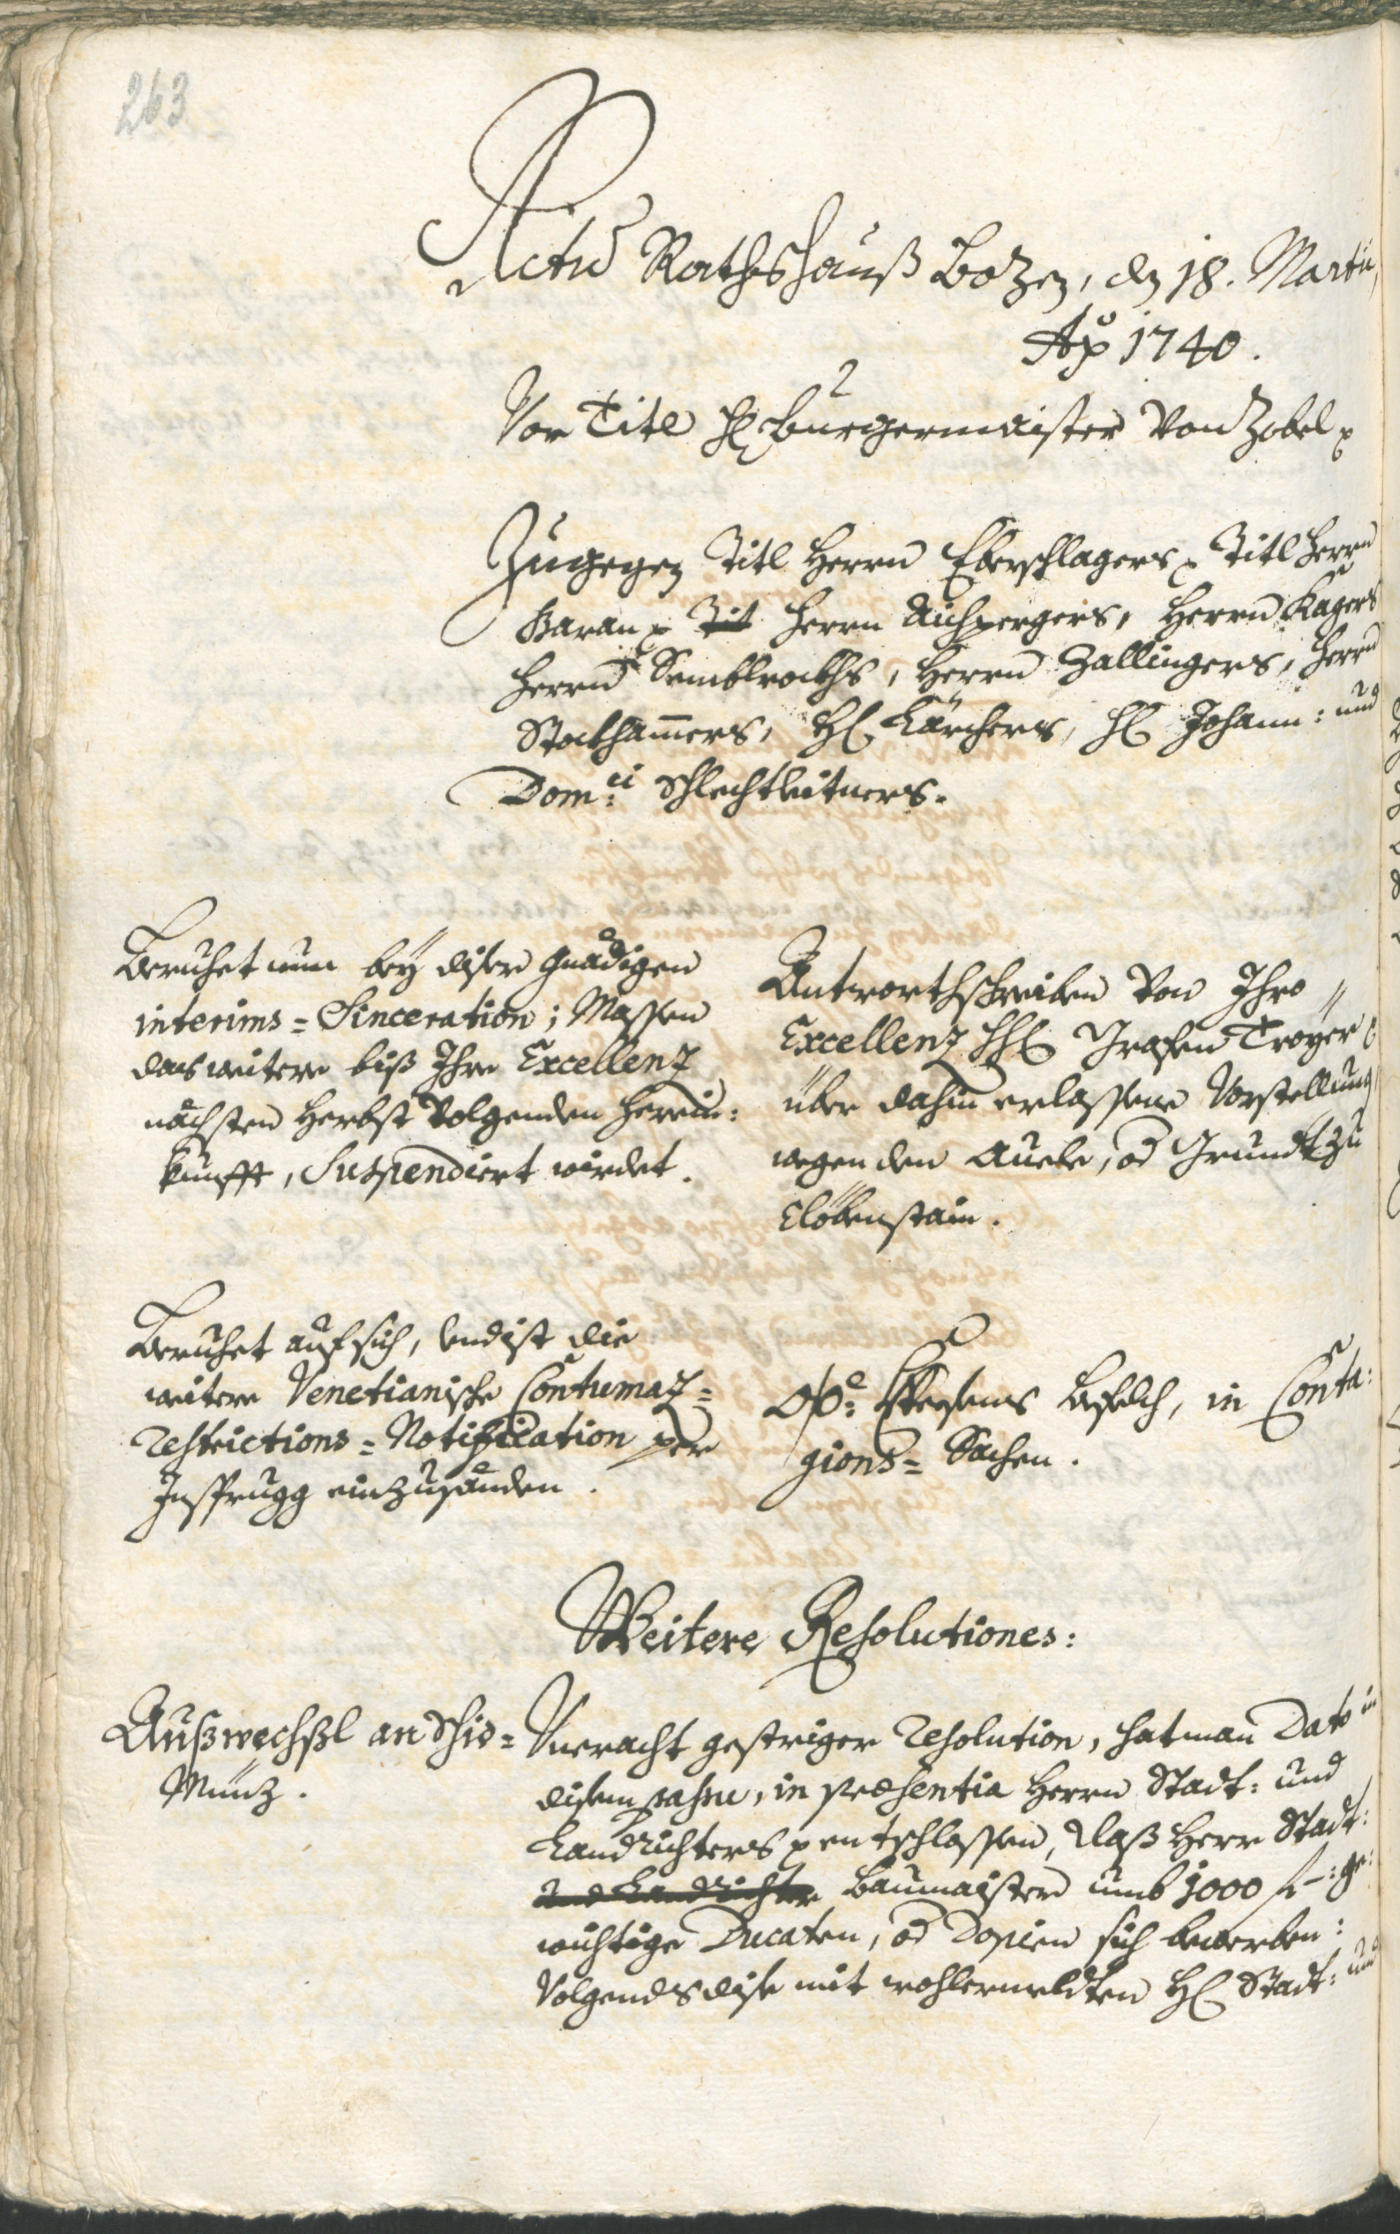 263
Actũ Rathshauß Bozen, den 18. Martii,
Aō 1740.
Vor Titl Hl Burgermaister von Zobel
Zugegen Titl Herrn Eberschlagers Titl Herrn
Baran Herrn Aichpergers, Herrn Kagers
Herrn Semblrockhs, Herrn Zallingers, Herrn
Stockhamers, Hl Kärchers, Hl Johann: und
Dom:ci Schlechtleitners.
Beruhet nun bey diser gnädigen
interims=Sinceration; Massen
das weitere biß Ihro Excellenz
nächsten Herbst volgenden herein:
kunfft, Suspendiert wirdet.
Antworthschreiben von Ihro
Excellenz Grafen Troyer
über dahin erlassene Vorstellung
wegen den Auele, od Grundt zu
Clobenstain.
Beruhet auf sich, und ist die
weitere Venetianische Contumaz=
restrictions=Notification per
Insprugg einzusenden.
Oö: Weesens Befelch, in Conta:
gions=Sachen.
Weitere Resolutiones:
Außwechßl an Schid=
Münz.
Vneracht gestriger resolution, hat man Dato in
disem passu, in præsentia Herrn Stadt: und
Landrichters entschlossen, daß Herr Stadt:
Baumaister umb 1000 f: ge:
wichtige Ducaten, od Dopien sich bewerben:
Volgends dise mit wohlermeldten Hl Stadt: und